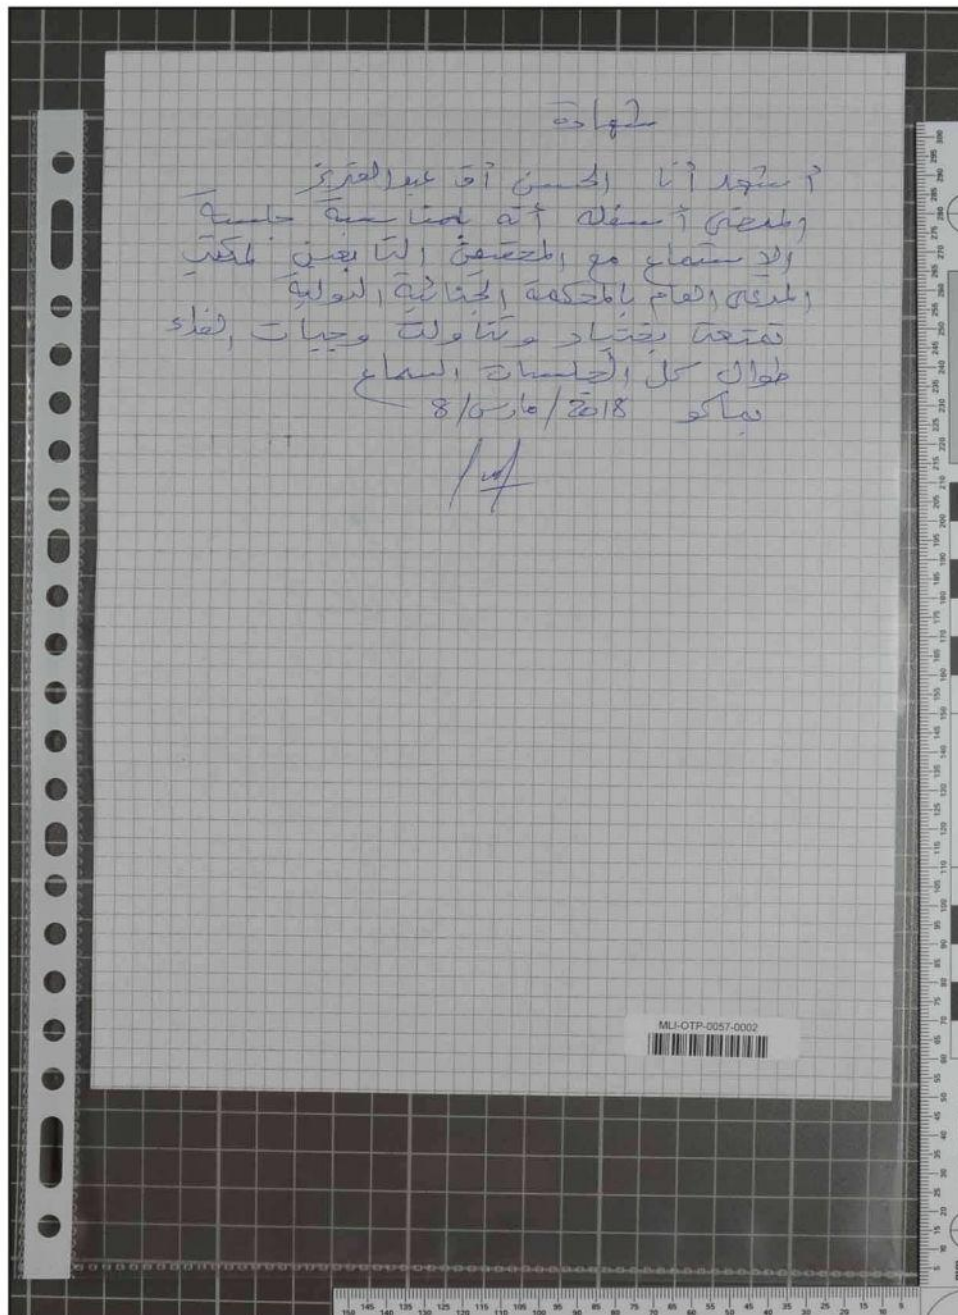 شهادة
أشهد أنا الحسن أق عبد العزيز
الممضى أسفله أنه بمناسبة جلسة
الاستماع مع المحققين التابعين لمكتب
المدعى العام بالمحكمة الجنائية الدولية
تمتعت وتناولت وجبات الغداء
طوال كل الجلسات السماع
بماكو 8/مارس/2018
MLI-OTP-0057-0002